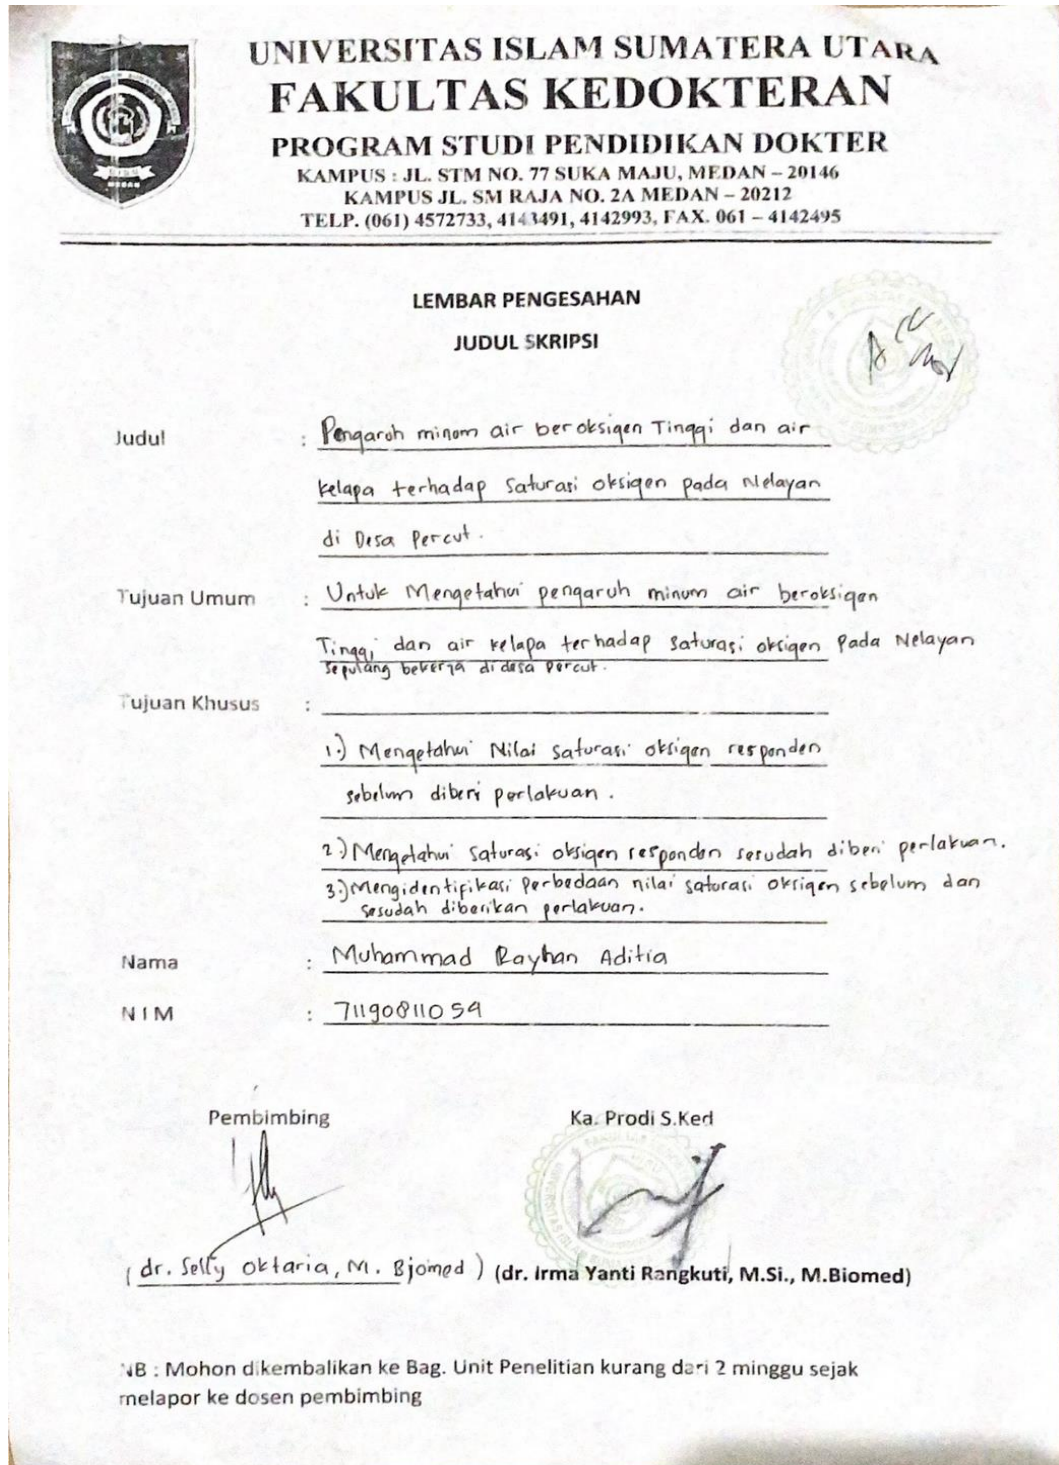 UNIVERSITAS ISLAM SUMATERA UTARA
FAKULTAS KEDOKTERAN
PROGRAM STUDI PENDIDIKAN DOKTER
KAMPUS : JL. STM NO. 77 SUKA MAJU, MEDAN – 20146
KAMPUS JL. SM RAJA NO. 2A MEDAN – 20212
TELP. (061) 4572733, 4143491, 4142993, FAX. 061 – 4142495
LEMBAR PENGESAHAN
JUDUL SKRIPSI
Judul : Pengaruh minum air beroksigen Tinggi dan air
kelapa terhadap saturasi oksigen pada Nelayan
di Desa Percut.
Tujuan Umum : Untuk Mengetahui pengaruh minum air beroksigen
Tinggi dan air kelapa terhadap saturasi oksigen Pada Nelayan
sepulang bekerja di desa Percut.
Tujuan Khusus :
1.) Mengetahui Nilai saturasi oksigen responden
sebelum diberi perlakuan.
2.) Mengetahui saturasi oksigen responden sesudah diberi perlakuan.
3.) Mengidentifikasi perbedaan nilai saturasi oksigen sebelum dan
sesudah diberikan perlakuan.
Nama : Muhammad Rayhan Aditia
NIM : 71190811059
Pembimbing Ka. Prodi S.Ked
(dr. Selly Oktaria, M. Biomed) (dr. Irma Yanti Rangkuti, M.Si., M.Biomed)
NB : Mohon dikembalikan ke Bag. Unit Penelitian kurang dari 2 minggu sejak
melapor ke dosen pembimbing